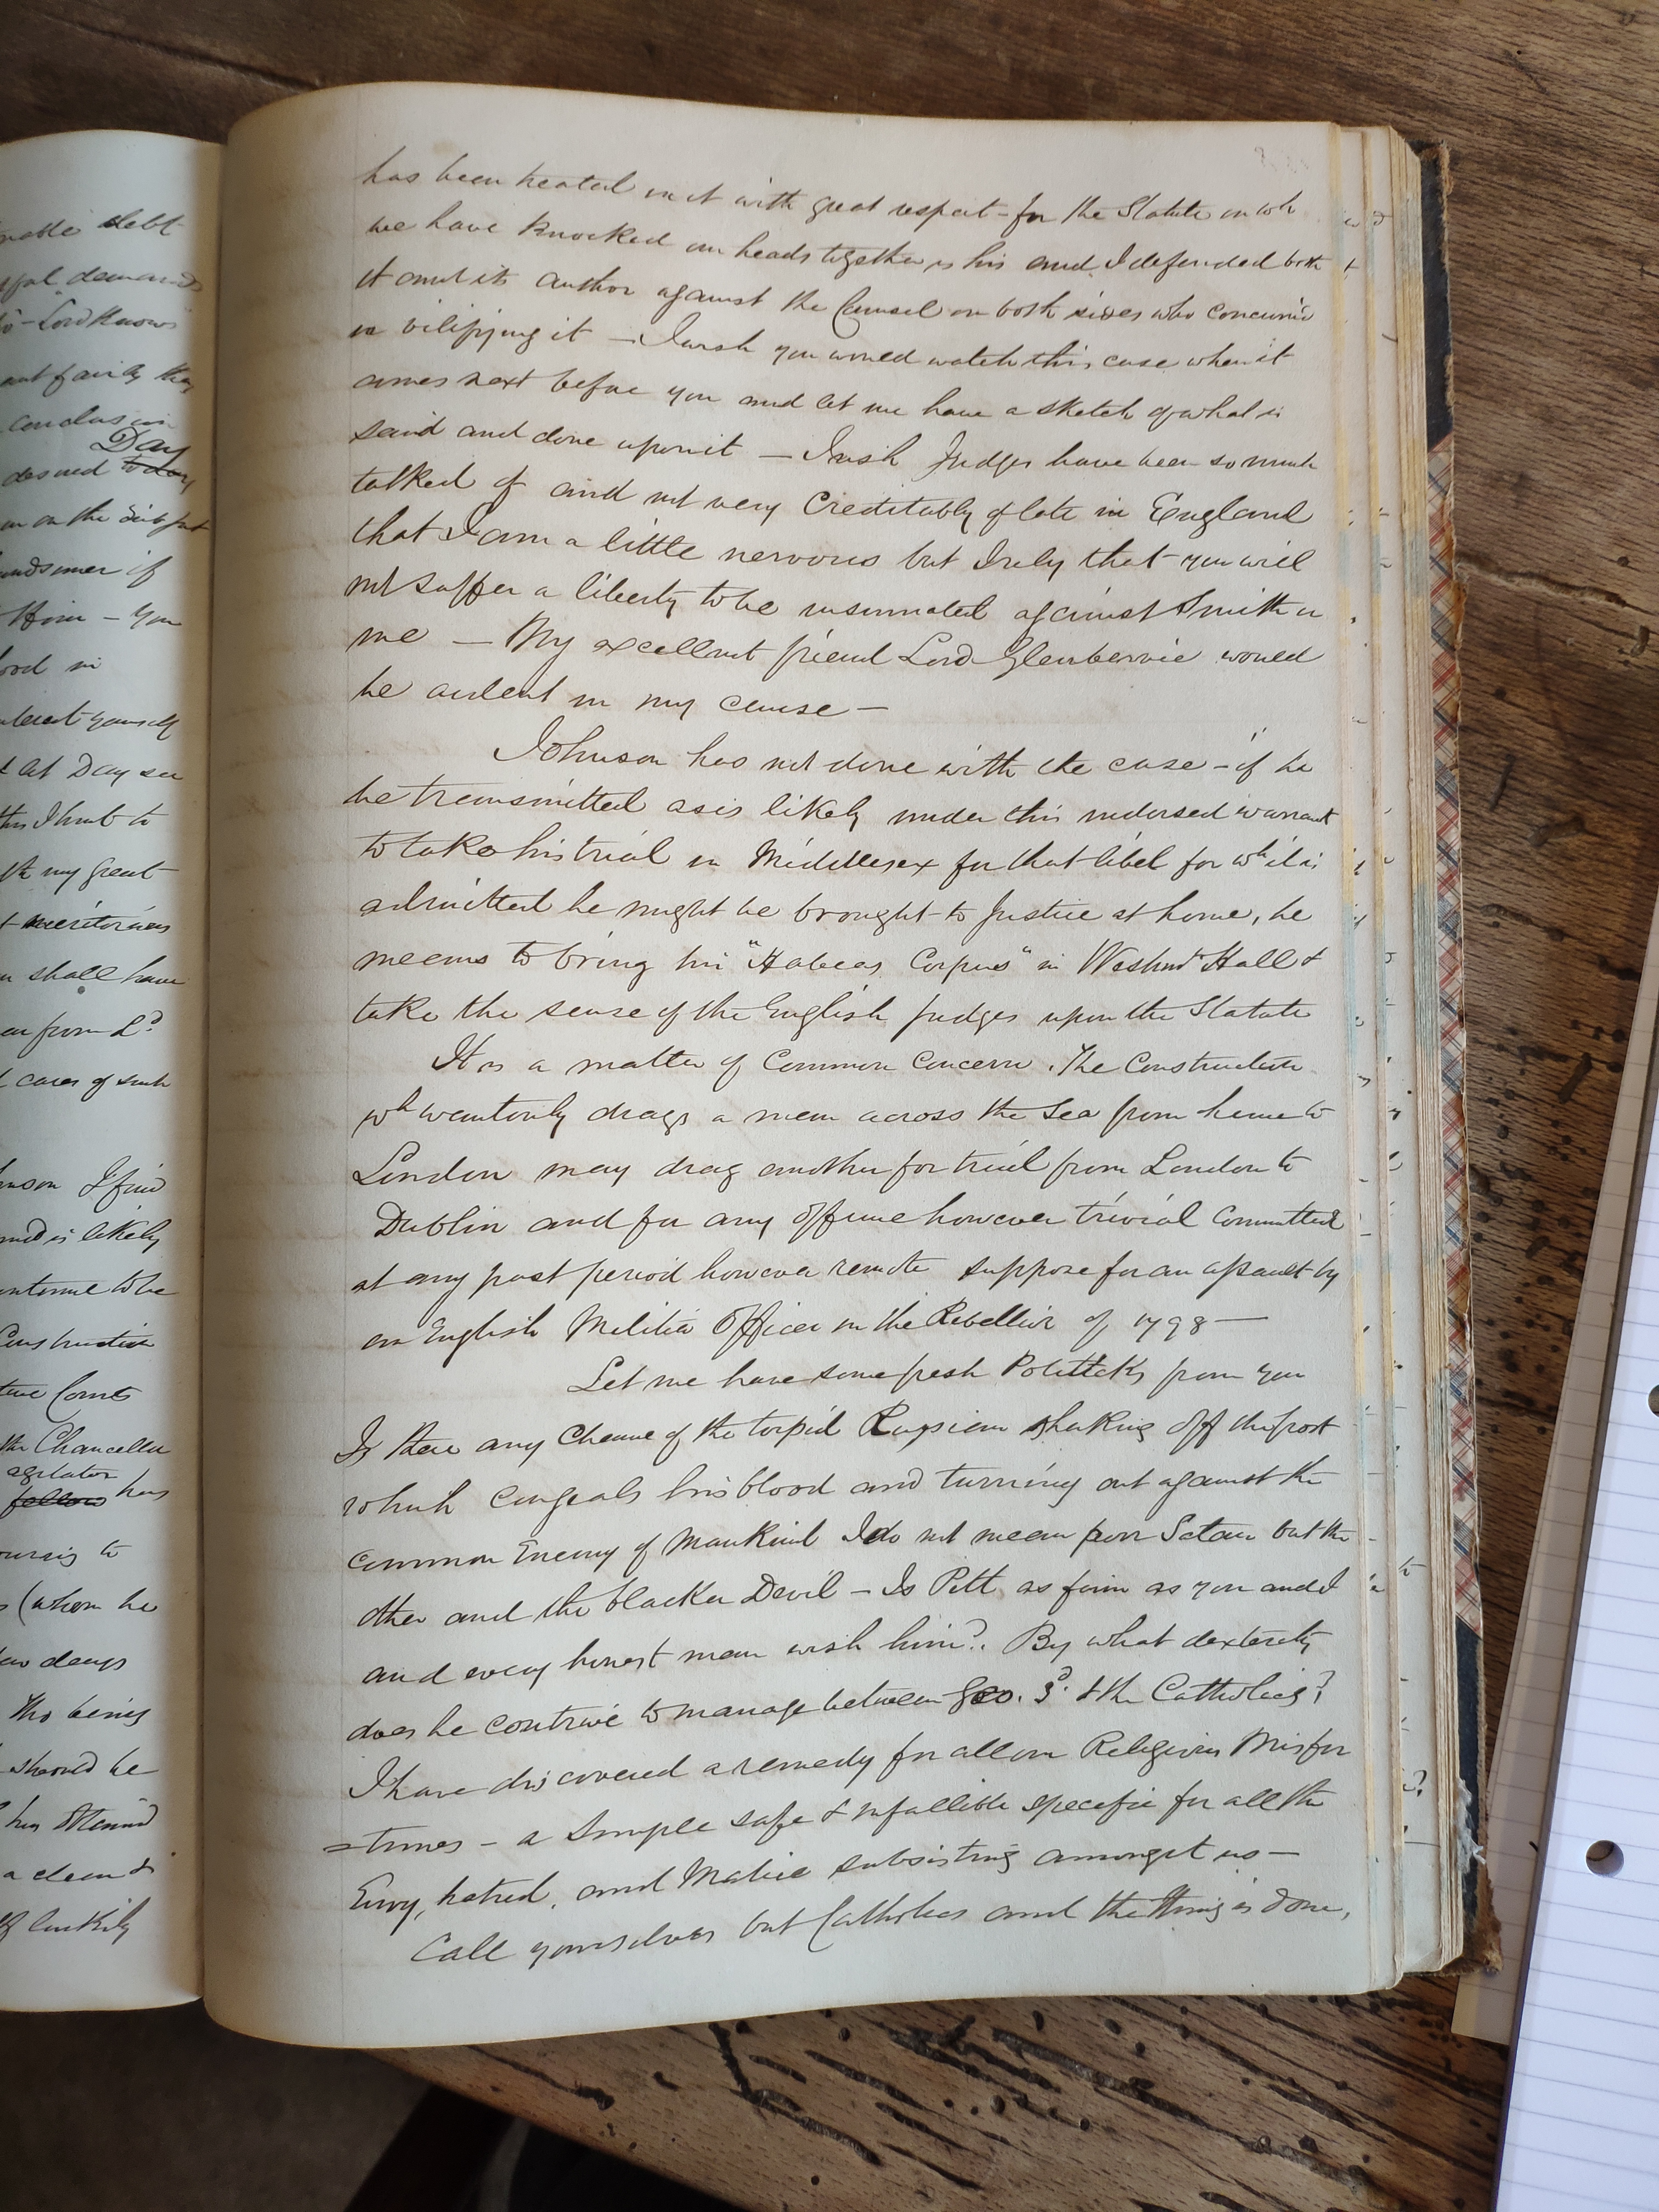 nable debt
demands
- Lord Knows
out fairly they
conclusion
Day
desired to day
on the subject
handsomer if
Him - you
interest yourself
at Day see
this I hunt to
my great
meritorious
shall have
from Ld
cases of such
Johnson I find
and is likely
continue to be
Construction
Courts
the Chancellor
agitator
fellow has
to
(whom he
few days
tho being
should be
has
luckily
has been treated in it with great respect - for the Statute on wh
we have Knocked our heads together is his and I defended both
it and its author against the Counsel on both sides who concurrd
in vilifying it - I wish you would watch this case when it
comes next before you and let me have a sketch of what is
said and done upon it - Irish Judges have been so much
talked of and not very Creditably of late in England
that I am a little nervous but I rely that you will
not suffer a liberty to be insinuated against Smith or
me - My excellent friend Lord Glenbervie would
be ardent in my cause -
Johnson has not done with the case - if he
be transmitted as is likely under this indorsed warrant
to take his trial in Middlesex for that libel for wh it is
admitted he might be brought to Justice at home, he
means to bring his "Habeas Corpus" in Westmr Hall &
take the sense of the English judges upon the Statute
It is a matter of Common Concern. The Construction
wh wantonly drags a man across the Sea from home to
London may drag another for trial from London to
Dublin and for any offence however trivial Committed
at any past period however remote suppose for an assault by
an English Militia Officer in the Rebellion of 1798 -
Let me have some fresh Politicks from you
Is there any Chance of the torpid Russian shaking off the frost
which congeals his blood and turning out against the
common Enemy of Mankind I do not mean poor Satan but the
other and the blacker Devil - Is Pitt as firm as you and I
and every honest man wish him?. By what dexterity
does he contrive to manage between Geo. 3d. & the Catholics?
I have discovered a remedy for all our Religious Misfor
=tunes - a Simple safe & infallible specific for all the
Envy, hatred, and Malice subsisting amongst us -
Call yourselves but Catholics and the thing is done,